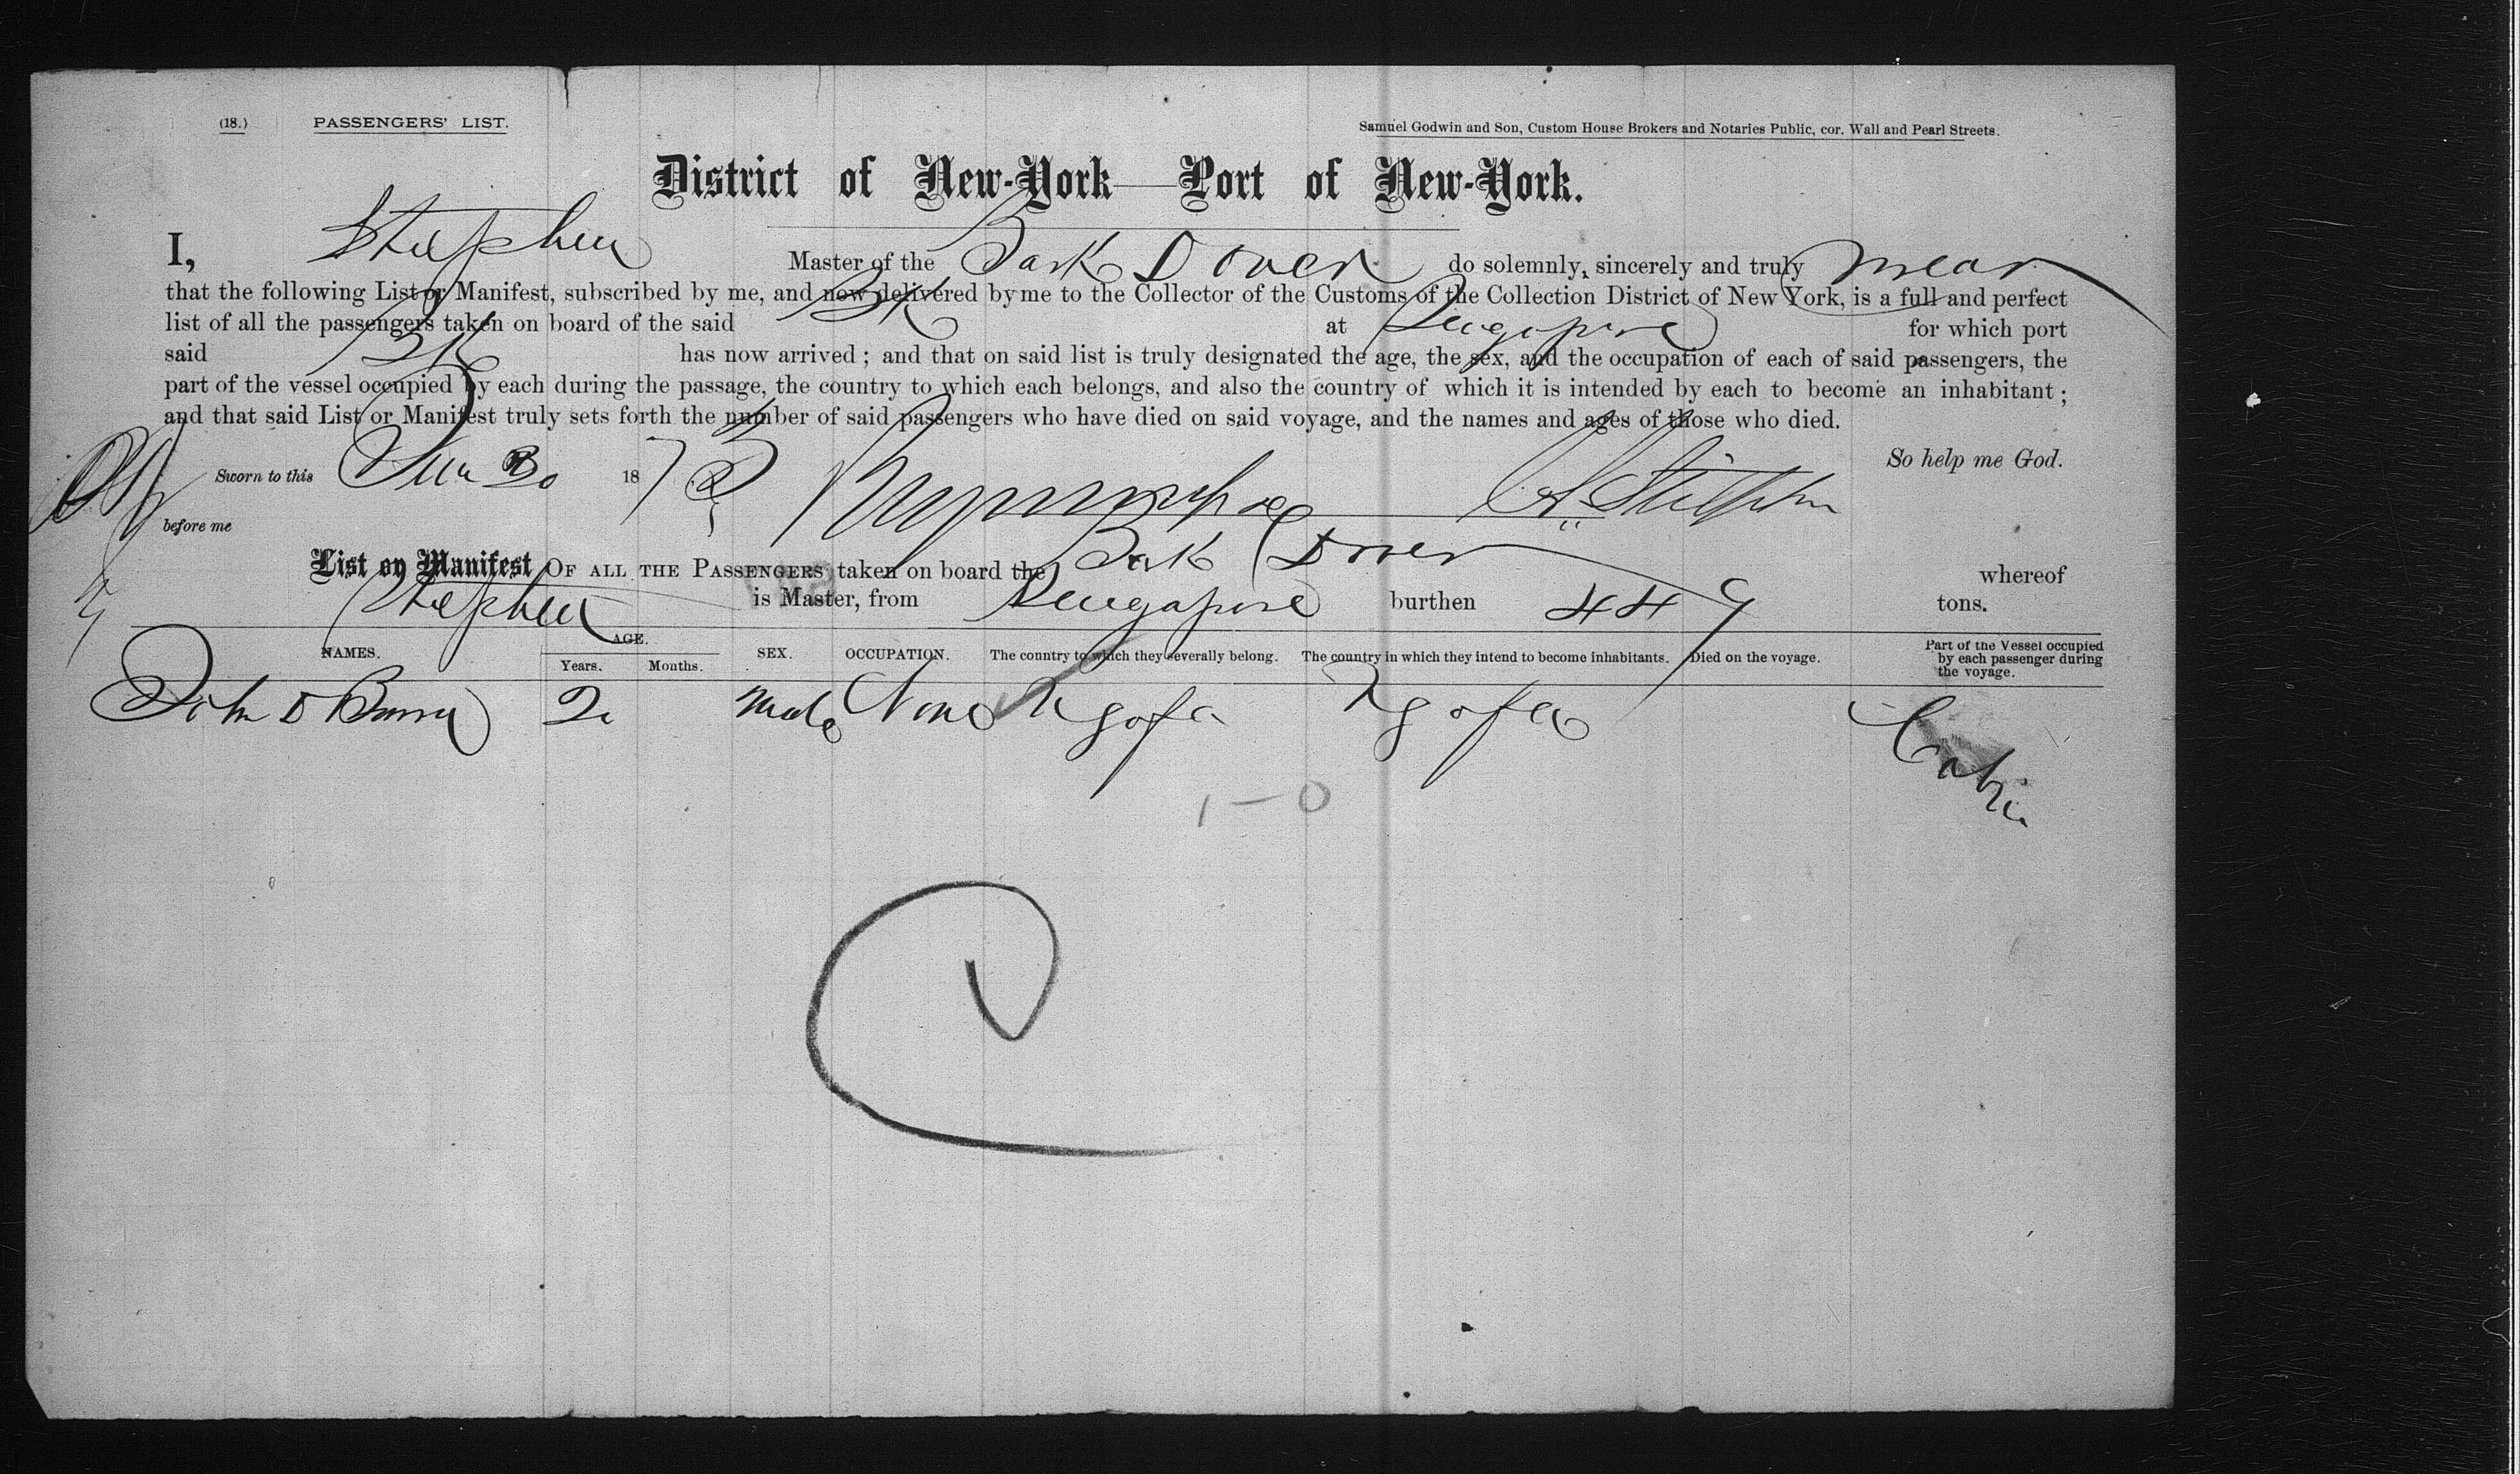 (18.) PASSENGERS' LIST. Samuel Godwin and Son, Custom House Brokers and Notaries Public, cor. Wall and Pearl Streets.
District of New-York—Port of New-York.
I, Stephen Master of the Bark Dover do solemnly, sincerely and truly swear
that the following List or Manifest, subscribed by me, and now delivered by me to the Collector of the Customs of the Collection District of New York, is a full and perfect
list of all the passengers taken on board of the said Bk at Singapore for which port
said Bk has now arrived ; and that on said list is truly designated the age, the sex, and the occupation of each of said passengers, the
part of the vessel occupied by each during the passage, the country to which each belongs, and also the country of which it is intended by each to become an inhabitant ;
and that said List or Manifest truly sets forth the number of said passengers who have died on said voyage, and the names and ages of those who died.
So help me God.
Sworn to this 30 187
before me
List or Manifest OF ALL THE PASSENGERS taken on board the Bark Dover whereof
Stephen is Master, from Singapore burthen 449 tons.
NAMES. AGE. Years. Months. SEX. OCCUPATION. The country to which they severally belong. The country in which they intend to become inhabitants. Died on the voyage. Part of the Vessel occupied by each passenger during the voyage.
John D male None Cabin
1–0
C